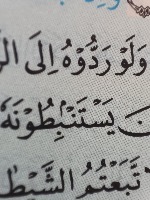 وَلَوْ رَدُّوْهُ اِلَى
يَسْتَنْۢبِطُوْنَهٗ
تَّبَعْتُمُ الشَّيْطٰ